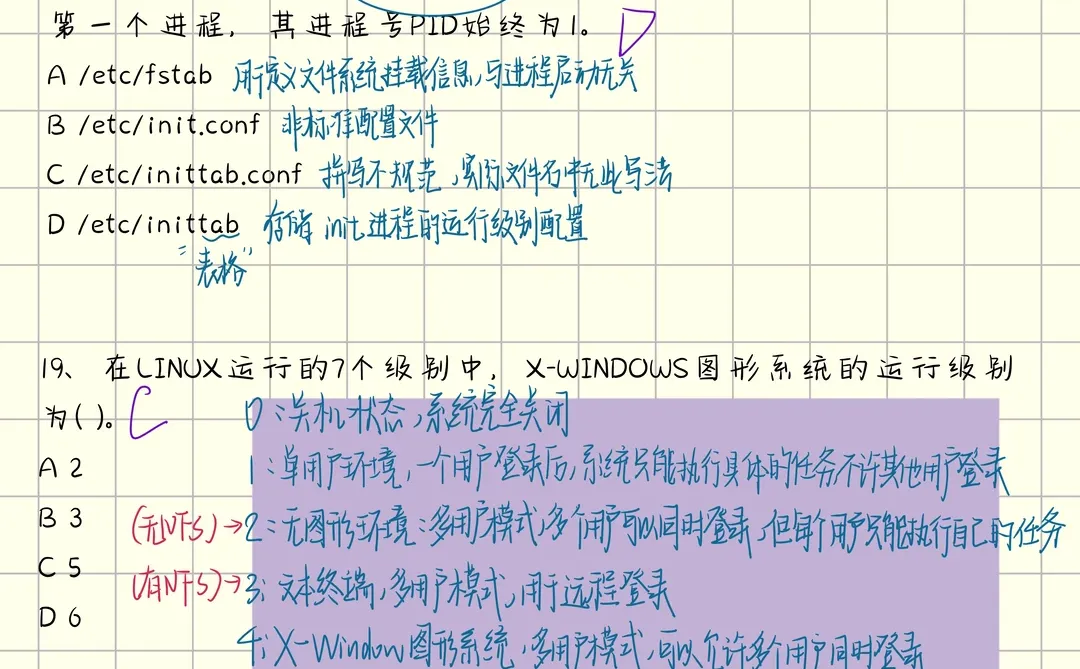 第一个进程, 其进程号PID始终为1。 D
A /etc/fstab 用于定义文件系统挂载信息,与进程启动无关
B /etc/init.conf 非标准配置文件
C /etc/inittab.conf 拼写不规范,实际文件名中无此写法
D /etc/inittab 存储 init 进程的运行级别配置
"表格"
19、在LINUX运行的7个级别中, X-WINDOWS图形系统的运行级别
为( )。 C
0:关机状态,系统完全关闭
A 2
1:单用户环境,一个用户登录后,系统只能执行具体的任务不许其他用户登录
B 3
(无NFS)→2:无图形环境:多用户模式,多个用户可以同时登录,但每个用户只能执行自己的任务
C 5
(有NFS)→3:文本终端,多用户模式,用于远程登录
D 6
4:X-Window图形系统,多用户模式,可以允许多个用户同时登录